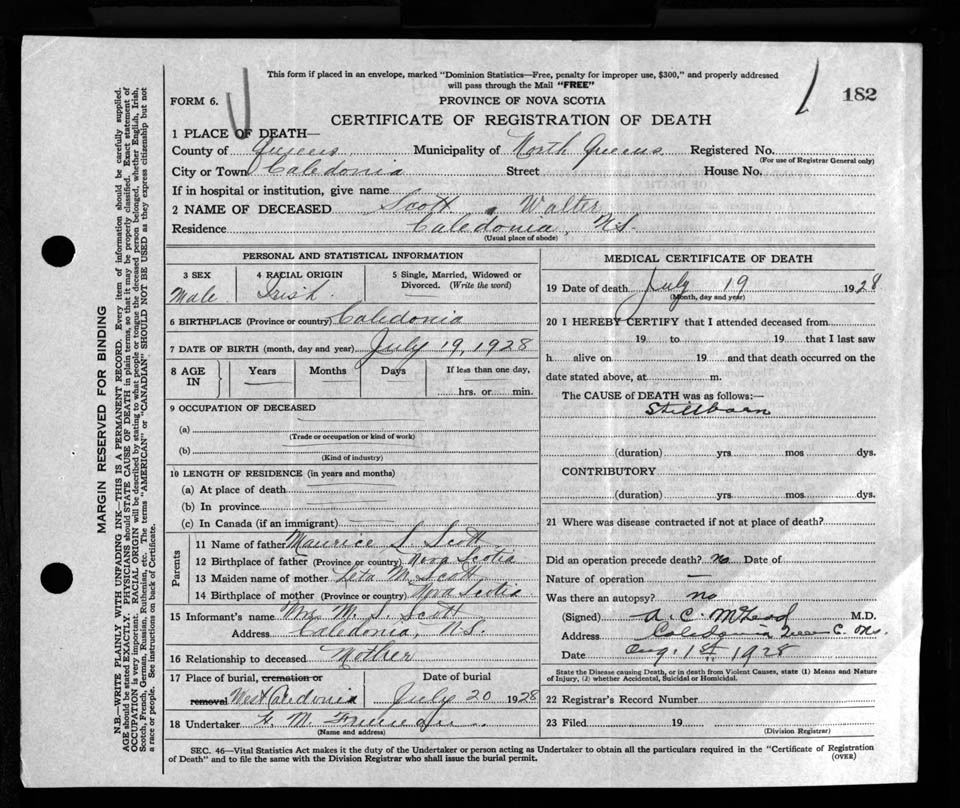 This form if placed in an envelope, marked "Dominion Statistics—Free, penalty for improper use, $300," and properly addressed
will pass through the Mail "FREE"
182
FORM 6.
PROVINCE OF NOVA SCOTIA
CERTIFICATE OF REGISTRATION OF DEATH
1 PLACE OF DEATH—
County of Queens Municipality of North Queens Registered No.
(For use of Registrar General only)
City or Town Caledonia Street House No.
If in hospital or institution, give name
2 NAME OF DECEASED Scott Walter
Residence Caledonia, N.S.
(Usual place of abode)
PERSONAL AND STATISTICAL INFORMATION
3 SEX 4 RACIAL ORIGIN 5 Single, Married, Widowed or
Divorced. (Write the word)
Male Irish
6 BIRTHPLACE (Province or country) Caledonia
7 DATE OF BIRTH (month, day and year) July 19, 1928
8 AGE IN Years Months Days If less than one day,
hrs. or min.
9 OCCUPATION OF DECEASED
(a)
(Trade or occupation or kind of work)
(b)
(Kind of industry)
10 LENGTH OF RESIDENCE (in years and months)
(a) At place of death
(b) In province
(c) In Canada (if an immigrant)
Parents
11 Name of father Maurice L Scott
12 Birthplace of father (Province or country) Nova Scotia
13 Maiden name of mother Leta M. Scott
14 Birthplace of mother (Province or country) Nova Scotia
15 Informant's name Mrs M. S. Scott
Address Caledonia, N.S.
16 Relationship to deceased Mother
17 Place of burial, cremation or Date of burial
removal West Caledonia July 20 1928
18 Undertaker F. M.
(Name and address)
MEDICAL CERTIFICATE OF DEATH
19 Date of death July 19 1928
(Month, day and year)
20 I HEREBY CERTIFY that I attended deceased from
19 to 19 that I last saw
h alive on 19 and that death occurred on the
date stated above, at m.
The CAUSE of DEATH was as follows:—
Stillborn
(duration) yrs mos dys.
CONTRIBUTORY
(duration) yrs. mos. dys.
21 Where was disease contracted if not at place of death?
Did an operation precede death? no Date of
Nature of operation —
Was there an autopsy? no
(Signed) A. C. M.D.
Address Caledonia
Date Aug. 1st 1928
State the Disease causing Death, or in death from Violent Causes, state (1) Means and Nature
of Injury, (2) whether Accidental, Suicidal or Homicidal.
22 Registrar's Record Number
23 Filed 19
(Division Registrar)
SEC. 46—Vital Statistics Act makes it the duty of the Undertaker or person acting as Undertaker to obtain all the particulars required in the "Certificate of Registration
of Death" and to file the same with the Division Registrar who shall issue the burial permit.
(OVER)
MARGIN RESERVED FOR BINDING
N.B.—WRITE PLAINLY WITH UNFADING INK—THIS IS A PERMANENT RECORD. Every item of information should be carefully supplied.
AGE should be stated EXACTLY. PHYSICIANS should STATE CAUSE OF DEATH in plain terms, so that it may be properly classified. Exact statement of
OCCUPATION is very important. RACIAL ORIGIN will be described by stating to what people or tongue the deceased person belonged, whether English, Irish,
Scotch, French, German, Russian, Ruthenian, etc. The terms "AMERICAN" or "CANADIAN" SHOULD NOT BE USED as they express citizenship but not
a race or people. See instructions on back of Certificate.